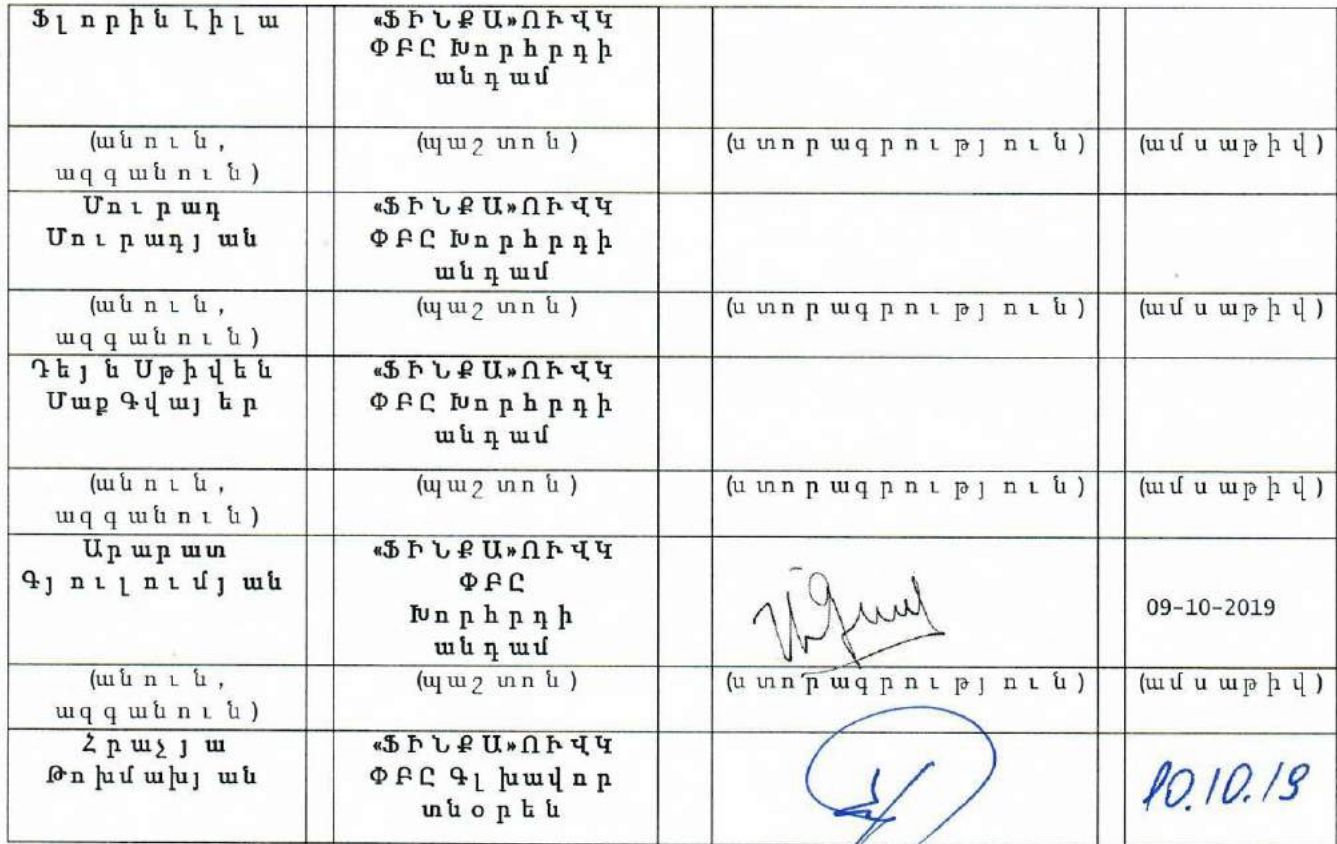 Ֆլորին Լիլա
«ՖԻՆՔԱ» ՈՒՎԿ
ՓԲԸ Խորհրդի
անդամ
(անուն,
ազգանուն)
(պաշտոն)
(ստորագրություն)
(ամսաթիվ)
Մուրադ
Մուրադյան
«ՖԻՆՔԱ» ՈՒՎԿ
ՓԲԸ Խորհրդի
անդամ
(անուն,
ազգանուն)
(պաշտոն)
(ստորագրություն)
(ամսաթիվ)
Դեյն Սթիվեն
Մաք Գվայեր
«ՖԻՆՔԱ» ՈՒՎԿ
ՓԲԸ Խորհրդի
անդամ
(անուն,
ազգանուն)
(պաշտոն)
(ստորագրություն)
(ամսաթիվ)
Արարատ
Գյուլումյան
«ՖԻՆՔԱ» ՈՒՎԿ
ՓԲԸ
Խորհրդի
անդամ
09-10-2019
(անուն,
ազգանուն)
(պաշտոն)
(ստորագրություն)
(ամսաթիվ)
Հրաչյա
Թոխմախյան
«ՖԻՆՔԱ» ՈՒՎԿ
ՓԲԸ Գլխավոր
տնօրեն
10.10.19